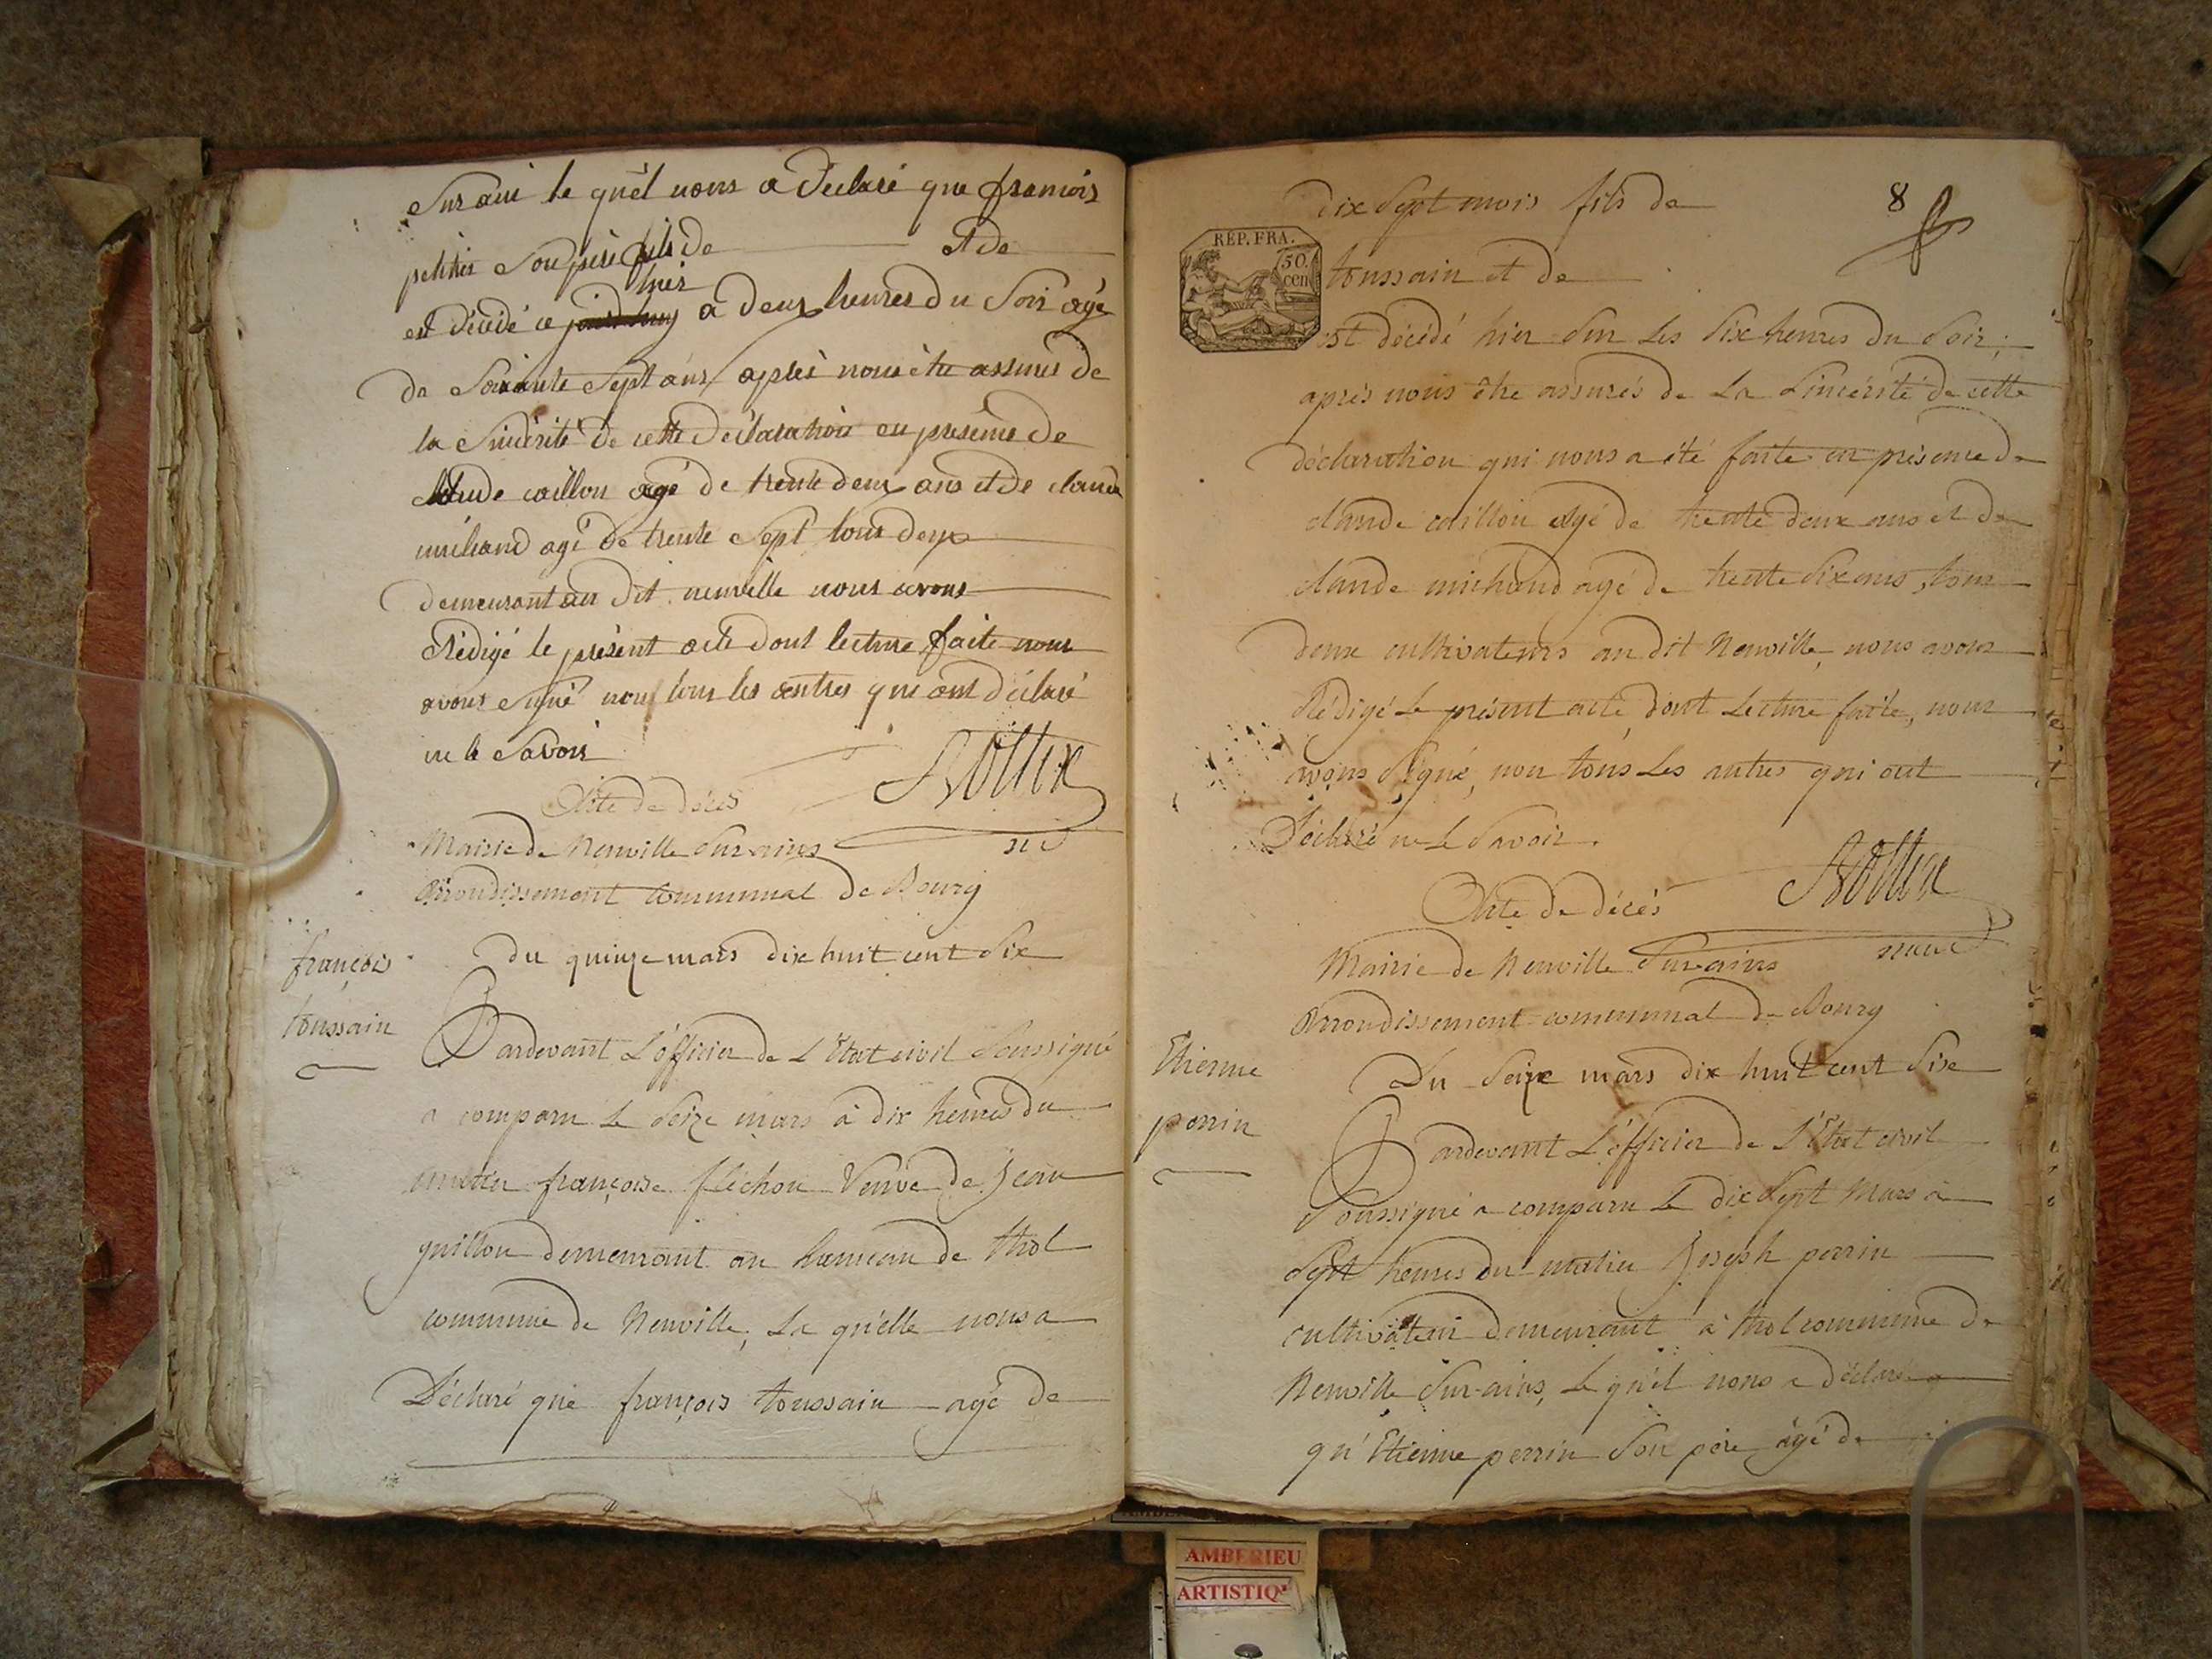 Sur ain le quel nous a déclaré que francois
petitier Son père fils de et de
hier
est décédé ce a deux heures du Soir agé
de Soixante Sept ans après nous être assurés de
la Sincérité de cette déclaration en présence de
Claude caillon agé de trente deux ans et de claude
michaud agé de trente Sept tous deux
demeurant au dit neuville nous avons
Rédigé le présent acte dont lecture faite nous
avons Signé non tous les autres qui ont déclaré
ne le Savoir
Acte de décès
Mairie de Neuville Sur ains
Arrondissement communal de Bourg
françois
toussain
du quinze mars dix huit cent Six
Pardevant L'officier de L'Etat civil Soussigné
a comparu Le Seize mars à dix heures du
matin françoise fléchon Veuve de Jean
guillon demeurant au hameau de thol
commune de Neuville, La qu'elle nous a
Déclaré que françois toussain agé de
8
dix Sept mois fils de
RÉP. FRA.
50.
cen
toussain et de
est décédé hier Sur Les Six heures du Soir;
après nous être assurés de La Sincérité de cette
déclaration qui nous a été faite en présence de
claude caillon agé de trente deux ans et de
claude michaud agé de trente Six ans, tous
deux cultivateurs au dit Neuville, nous avons
Rédigé Le présent acte, dont Lecture faite, nous
avons Signé, non tous Les autres qui ont
Déclaré ne Le Savoir.
Acte de décès
Mairie de Neuville Sur-ains
Arrondissement communal de Bourg
Etienne
perrin
Du Seize mars dix huit cent Six
Pardevant L'officier de L'Etat civil
Soussigné a comparu Le dix Sept Mars à
Sept heures du matin Joseph perrin
cultivateur demeurant à thol commune de
Neuville Sur-ains, Le qu'el nous a déclaré
qu'Etienne perrin Son père âgé de
AMBERIEU
ARTISTIQ